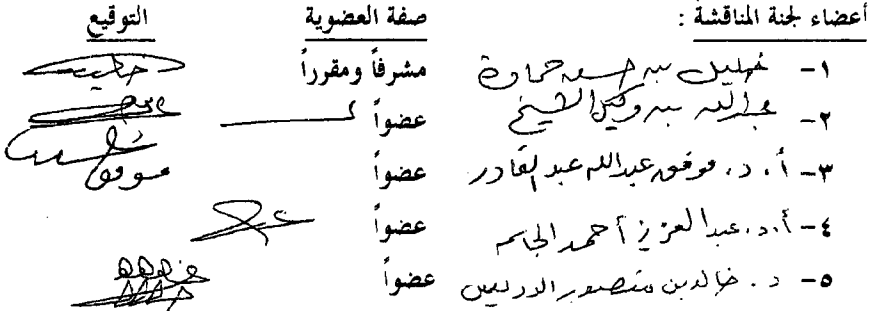 أعضاء لجنة المناقشة : صفة العضوية التوقيع
١- خليل بن حسن حمادة مشرفاً ومقرراً
٢- عبدالله بن وكيل الشيخ عضواً
٣- أ. د. موفق عبدالله عبد القادر عضواً موفق
٤- أ.د. عبدالعزيز أحمد الجاسم عضواً
٥- د. خالد بن منصور الدريس عضواً